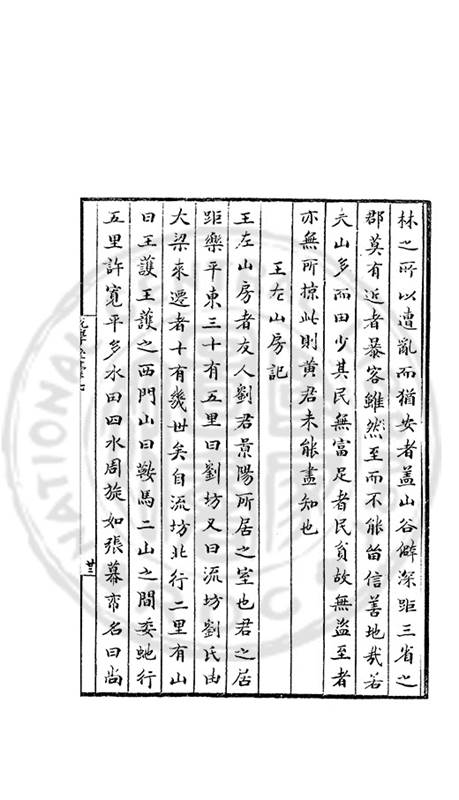 林之所以遭亂而猶安者盖山谷僻深距三省之
郡莫有近者暴客雖然至而不能畱信善地哉若
夫山多而田少其民無富足者民貧故無盜至者
亦無所掠此則黄君未能盡知也
王左山房記
王左山房者友人劉君景陽所居之室也君之居
距樂平東三十有五里曰劉坊又曰流坊劉氏由
大梁來遷者十有幾世矣自流坊北行二里有山
曰王護王護之西門山曰鞍馬二山之間委虵行
五里許寬平多水田四水周旋如張幕帟名曰尚
廿三